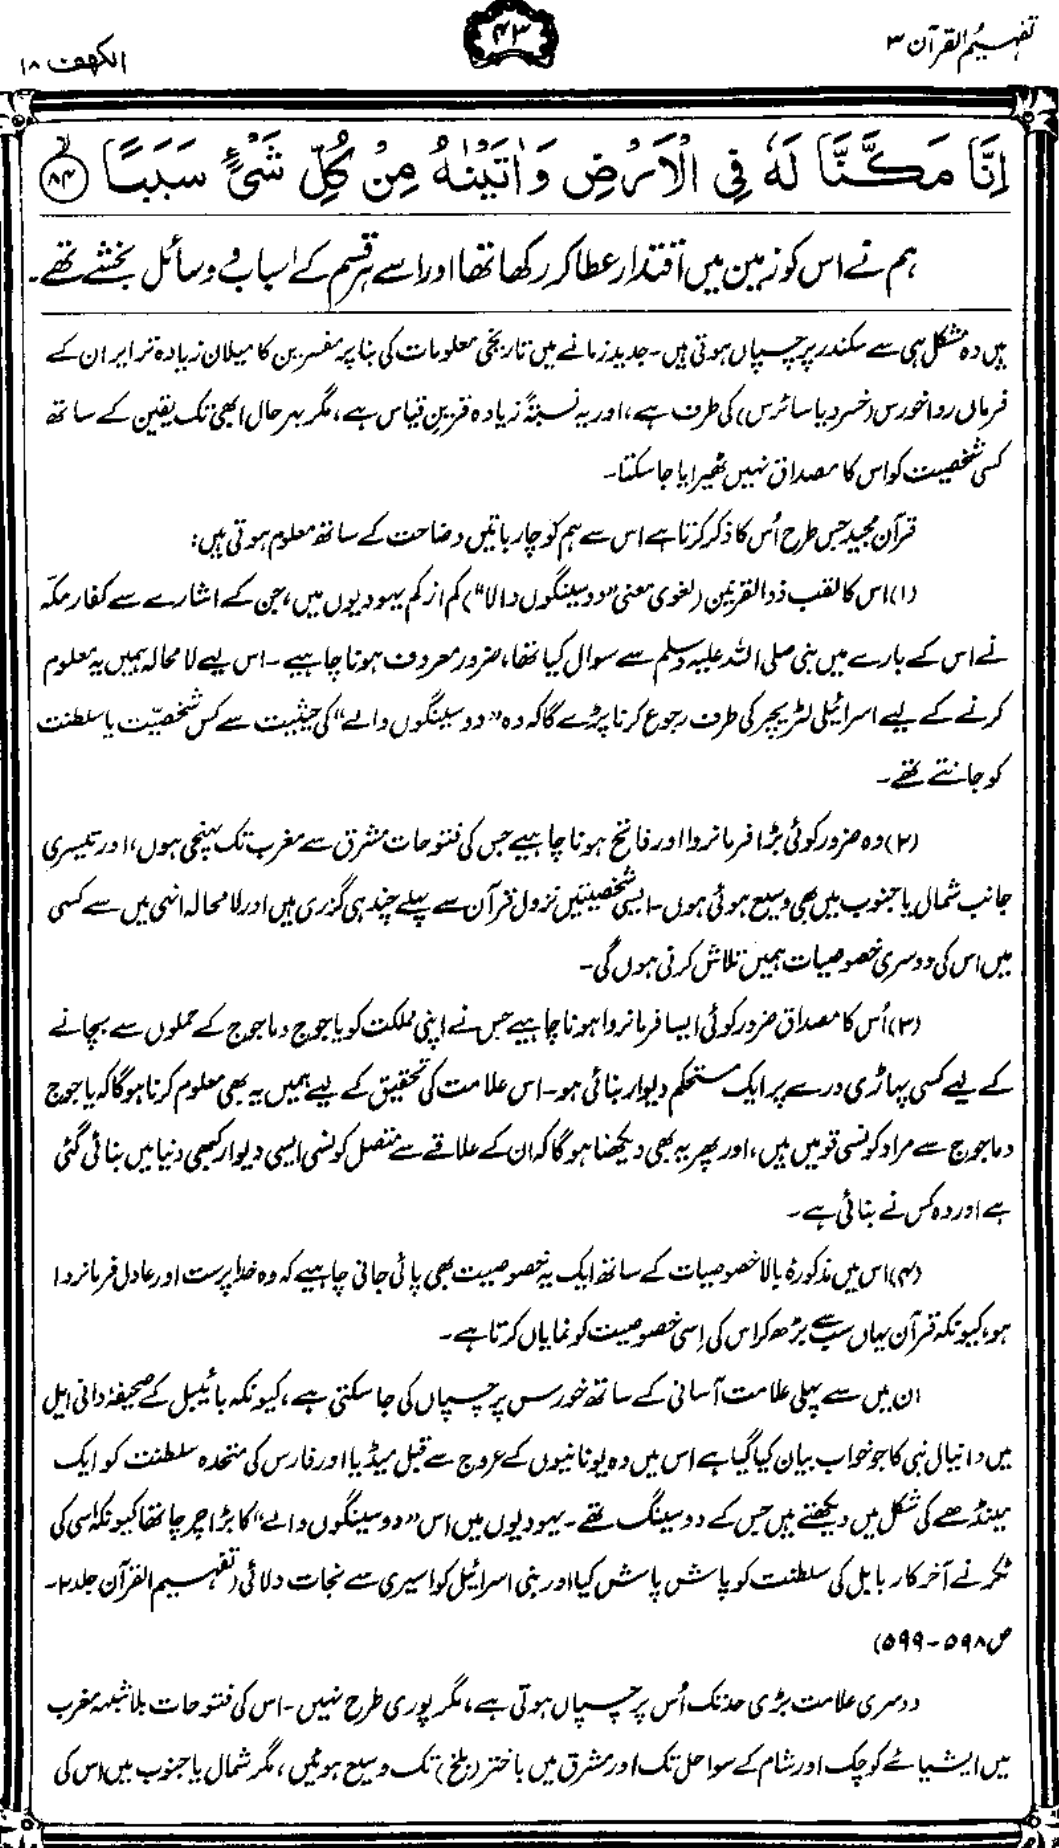 تفہیم القرآن ۳
۴۳
الکہف ۱۸
اِنَّا مَكَّنَّا لَهٗ فِي الْاَرْضِ وَاٰتَيْنٰهُ مِنْ كُلِّ شَيْءٍ سَبَبًا ۙ۸۴
ہم نے اس کو زمین میں اقتدار عطا کر رکھا تھا اور اسے ہر قسم کے اسباب و وسائل بخشے تھے۔
ہیں وہ مشکل ہی سے سکندر پر چسپاں ہوتی ہیں۔ جدید زمانے میں تاریخی معلومات کی بنا پر مفسرین کا میلان زیادہ تر ایران کے
فرماں روا خورس (خسرو یا سائرس) کی طرف ہے، اور یہ نسبۃً زیادہ قرینِ قیاس ہے، مگر بہر حال ابھی تک یقین کے ساتھ
کسی شخصیت کو اس کا مصداق نہیں ٹھیرایا جا سکتا۔
قرآن مجید جس طرح اُس کا ذکر کرتا ہے اس سے ہم کو چار باتیں وضاحت کے ساتھ معلوم ہوتی ہیں:
(۱) اس کا لقب ذوالقرنین (لغوی معنی "دو سینگوں والا") کم از کم یہودیوں میں، جن کے اشارے سے کفار مکّہ
نے اس کے بارے میں نبی صلی اللہ علیہ وسلم سے سوال کیا تھا، ضرور معروف ہونا چاہیے۔ اس لیے لامحالہ ہمیں یہ معلوم
کرنے کے لیے اسرائیلی لٹریچر کی طرف رجوع کرنا پڑے گا کہ وہ "دو سینگوں والے" کی حیثیت سے کس شخصیّت یا سلطنت
کو جانتے تھے۔
(۲) وہ ضرور کوئی بڑا فرمانروا اور فاتح ہونا چاہیے جس کی فتوحات مشرق سے مغرب تک پہنچی ہوں، اور تیسری
جانب شمال یا جنوب میں بھی وسیع ہوئی ہوں۔ ایسی شخصیتیں نزول قرآن سے پہلے چند ہی گزری ہیں اور لامحالہ انہی میں سے کسی
میں اس کی دوسری خصوصیات ہمیں تلاش کرنی ہوں گی۔
(۳) اُس کا مصداق ضرور کوئی ایسا فرمانروا ہونا چاہیے جس نے اپنی مملکت کو یاجوج و ماجوج کے حملوں سے بچانے
کے لیے کسی پہاڑی درے پر ایک مستحکم دیوار بنائی ہو۔ اس علامت کی تحقیق کے لیے ہمیں یہ بھی معلوم کرنا ہوگا کہ یاجوج
و ماجوج سے مراد کونسی قومیں ہیں، اور پھر یہ بھی دیکھنا ہوگا کہ ان کے علاقے سے متصل کونسی ایسی دیوار کبھی دنیا میں بنائی گئی
ہے اور وہ کس نے بنائی ہے۔
(۴) اس میں مذکورۂ بالا خصوصیات کے ساتھ ایک یہ خصوصیت بھی پائی جانی چاہیے کہ وہ خدا پرست اور عادل فرمانروا
ہو، کیونکہ قرآن یہاں سب سے بڑھ کر اس کی اِسی خصوصیت کو نمایاں کرتا ہے۔
ان میں سے پہلی علامت آسانی کے ساتھ خورس پر چسپاں کی جا سکتی ہے، کیونکہ بائیبل کے صحیفۂ دانی ایل
میں دانیال نبی کا جو خواب بیان کیا گیا ہے اس میں وہ یونانیوں کے عروج سے قبل میڈیا اور فارس کی متحدہ سلطنت کو ایک
مینڈھے کی شکل میں دیکھتے ہیں جس کے دو سینگ تھے۔ یہودیوں میں اس "دو سینگوں والے" کا بڑا چرچا تھا کیونکہ اسی کی
ٹکر نے آخر کار بابل کی سلطنت کو پاش پاش کیا اور بنی اسرائیل کو اسیری سے نجات دلائی (تفہیم القرآن جلد ۲۔
ص ۵۹۸-۵۹۹)
دوسری علامت بڑی حد تک اُس پر چسپاں ہوتی ہے، مگر پوری طرح نہیں۔ اس کی فتوحات بلاشبہ مغرب
میں ایشیائے کوچک اور شام کے سواحل تک اور مشرق میں باختر (بلخ) تک وسیع ہوئیں، مگر شمال یا جنوب میں اس کی